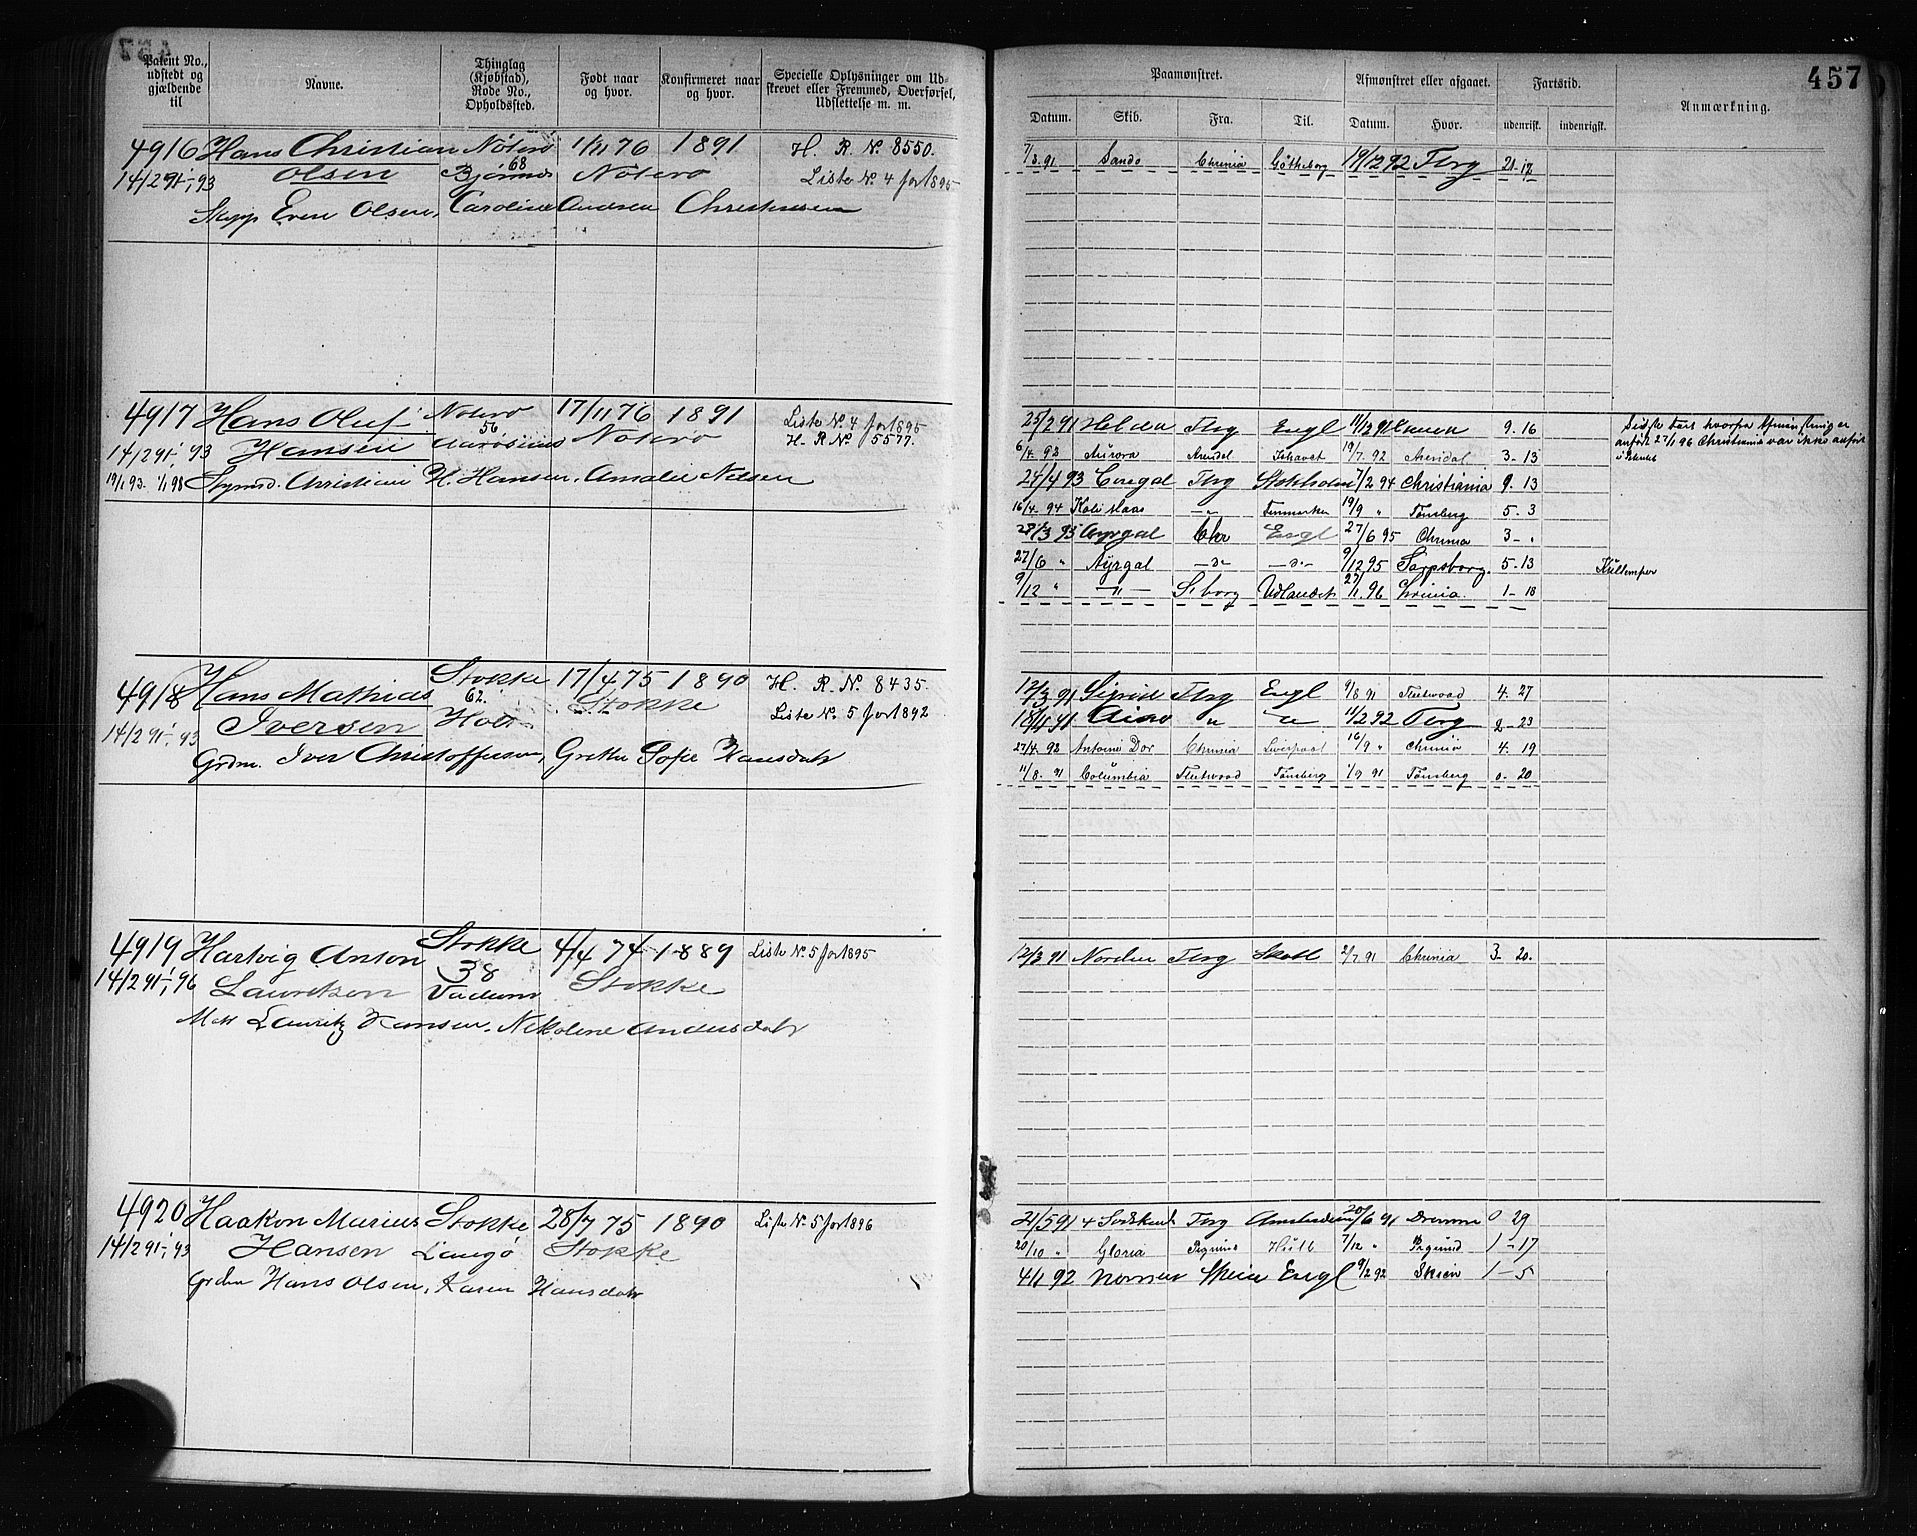 457
Patent No., udstedt og gjældende til
Navne.
Thinglag (Kjøbstad), Rode No., Opholdssted.
Født naar og hvor.
Konfirmeret naar og hvor.
Specielle Oplysninger om Udskrevet eller Fremmed, Overførsel, Udslettelse m. m.
Paamønstret.
Afmønstret eller afgaaet.
Fartstid.
Anmærkning.
Datum. Skib. Fra. Til. Datum. Hvor. udenrisk. indenrigsk.
4916 Hans Christian Nøterø 1/11 76 1891 H. R. No. 8550.
14/2 91-1/1 93 Olsen 68 Bjørnnes Nøterø Liste No. 4 for 1895
Skipp Even Olsen, Caroline Andrea Christensen
7/3. 91 Sando Chrinia Gøtheborg 19/12 92 Tbrg 21-12
4917 Hans Oluf Nøterø 17/11 76 1891 Liste No. 4 for 1895
14/2 91-1/1 93 Hansen 56 Nøterø H. R. No. 5577.
19/1 93-1/1 98 Christian H. Hansen, Amalie Nilsen
25/2 91 Tbrg Engl 11/12 91 9. 16
6/4. 92 Aurora Arendal Ishavet 19/7. 92 Arendal 3-13
24/4 93 Tbrg Stokholm 7/2 94 Christiania 9. 13
16/4. 94 -"- Finmarken 19/9 " Tønsberg 5. 3
28/3 95 Chr Engl 27/6 95 Chrinia 3-.
27/6 " Ayrgal -"- -"- 9/12 95 Sarpsborg. 5-13
9/12 " -"- S. borg Udlandet 27/1. 96 Chrinia. 1-18
4918 Hans Mathias Stokke 17/4 75 1890 H. R. No. 8435.
14/2 91-1/1 93 Iversen 62. Stokke Liste No. 5 for 1892
Grdm. Iver Christoffersen, Grethe Sofie Hansdatr
12/3 91 Sigrid Tbrg Engl 9/8 91 Fleetwood 4. 27
18/11 91 Aino " " 11/2 92 Tbrg 2-23
27/4. 92 Antoine Dor Chrinia Liverpool 16/9 " Chrinia 4. 19
11/8. 91 Columbia Fleetwood Tønsberg 1/9 91 Tønsberg 0. 20
4919 Hartvig Anson Stokke 4/4 74 1889 Liste No. 5 for 1895
14/2 91-1/1 96 Lauritzen 38 Stokke
Matr Lauritz Hansen, Nikoline Andersdatr
12/3 91 Norden Tbrg Skotl 2/7. 91 Chrinia 3. 20.
4920 Haakon Marius Stokke 28/7 75 1890 Liste No. 5 for 1896
14/2 91-1/1 93 Hansen Langø Stokke
Grdbr Hans Olsen, Karen Hansdatr
21/5 91 4 Sødskend Tbrg Amsterdam 20/6 91 Dramme 0 29
20/10 " Gloria Hull 7/12 " 1-17
4/1 92 Skien Engl 9/2 92 Skien 1-5